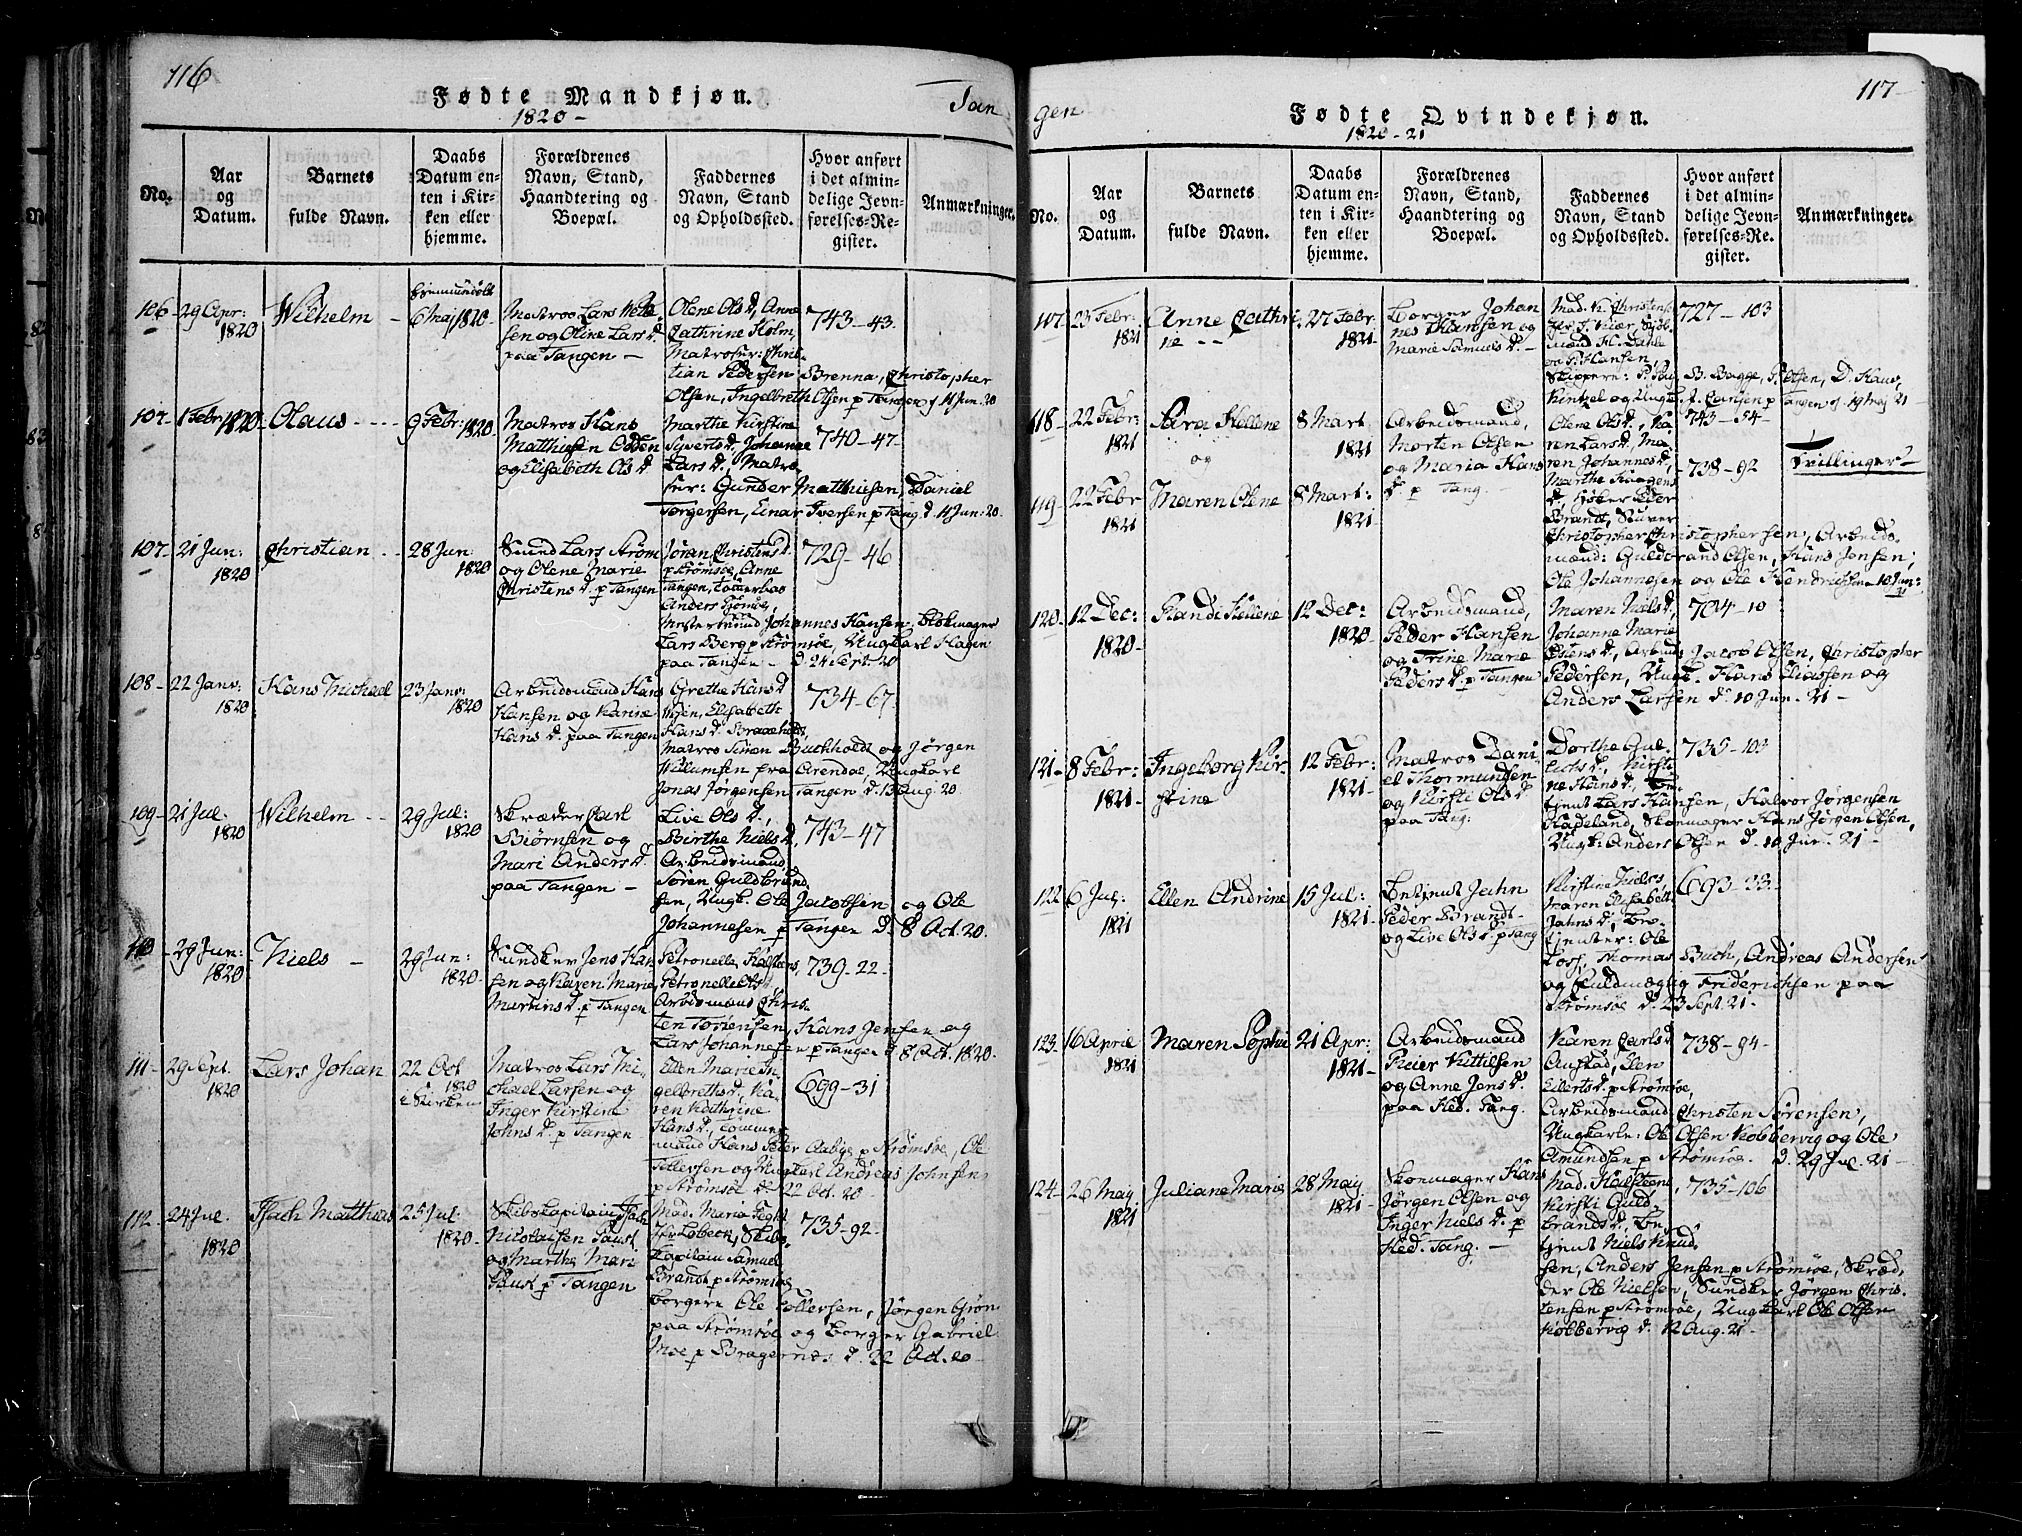 116
Fødte Mandkjøn.
1820 -
Tan
No.
Aar og Datum.
Barnets fulde Navn.
Daabs Datum enten i Kirken eller hjemme.
Forældrenes Navn, Stand, Haandtering og Boepæl.
Faddernes Navn, Stand og Opholdssted.
Hvor anført i det almindelige Jevnførelses-Register.
Anmærkninger.
106 29 Apr: 1820
Wilhelm
hjemmedøbt
6 Maj 1820
Matros Lars
sen og Oline Lars D.
paa Tangen -
Olene Ols D, Anne
Cathrine Holm,
Matroser: Chris-
tian Pedersen Brenna, Christopher
Olsen, Ingelbreth Olsen p Tangen d. 11 Jun. 20
743-43.
107- 1 Febr: 1820
Olaus
9 Febr: 1820
Matros Hans
Matthisen Odden
og Elisabeth Ols D.
Marthe Kirstine
Syverts D, Johanne
Lars D, Matro-
ser: Gunder Matthisen, Daniel
Torgersen, Einar Iversen p Tang. d. 11 Jun: 20.
740-47.
107. 21 Jun: 1820
Christian
28 Jun: 1820
Sund Lars Strøm
og Olene Marie
Christens D. p Tangen
Jøran Christens D.
p Strømsøe, Anne
Tangen,
Anders
Johannes Hansen, Blokmager
Lars Berg p Strømsøe, Ungkarl Hagen
paa Tangen - d. 24 Sept. 20
729-46
108- 22 Janv: 1820
Hans Michael
23 Janv: 1820
Arbeidsmand Hans
Hansen og Karine
Hans D. paa Tangen
Grethe Hans D
Elisabeth
Hans D.
Matros Simen Buchholdt og Jørgen
Willumsen fra Arendal, Ungkarl
Jonas Jørgensen Tangen d. 13 Aug. 20
734-67.
109- 21 Jul. 1820
Wilhelm
29 Jul: 1820
Skræder Carl
Biørnsen og
Mari Anders D.
paa Tangen -
Live Ols D.,
Birthe Niels D.
Arbeidsmand
Søren Guldbrand-
sen, Ungk. Ole Jacobsen og Ole
Johannesen p Tangen d. 8 Oct. 20.
743-47
110 - 29 Jun: 1820
Niels -
29 Jun: 1820
Sundker Jens Han-
sen og Karen Marie
Martins D. p Tangen
Petronelle Halsteens,
Petronelle Ols
Arbdsmand Chris-
ten Torgensen, Hans Jensen og
Lars Johannesen p Tangen d 8 Oct. 1820.
739-22-
111- 29 Sept. 1820
Lars Johan
22 Oct 1820
i Kirken
Matros Lars Mi-
chael Larsen og
Inger Kirstine
Johns D. p Tangen
Ellen Marie In-
gelbreths D., Ka-
ren Kathrine
Hans D.,
mand Hans Peter Aabye p Strømsøe, Ole
Tellefsen og Ungkarl Andreas Johnsen
p Strømsøe d. 22 Oct. 20-
699-31
112. 24 Jul. 1820
Isach Matthias
25 Jul: 1820-
Skibskapitain Isach
Nicolaisen Faust
og Marthe Mari
Faust p Tangen
Mad. Maria
Lobeck, Skibs-
kapitain Samuel
Brandt p Strømsøe,
borgere Ole Tollefsen, Jørgen Grøn
paa Strømsøe og Borger Gabriel
Moe p Bragernes d. 22 Oct. 20-
735-92-
117
gen
Fødte Qvindekjøn.
1820-21
No.
Aar og Datum.
Barnets fulde Navn.
Daabs Datum enten i Kirken eller hjemme.
Forældrenes Navn, Stand, Haandtering og Boepæl.
Faddernes Navn, Stand og Opholdssted.
Hvor anført i det almindelige Jevnførelses-Register.
Anmærkninger.
117- 23 Febr: 1821
Anne Cathri-
ne --
27 Febr 1821-
Borger Johan-
nes Hansen og
Marie Samuels D. -
Mad. K. Christens
Kiær,
H. Dahle
og P. Hansen,
Skippere: B. Bagge, P. Olsen, D. Haus,
Hintzel og Ungk. J. Carlsen p Tangen d. 19 Maj 21-
727-103
118- 22 Febr: 1821
Sara Hellene
og
8 Mart 1821
Arbeidsmand,
Morten Olsen
og Maria Hans
D. p Tang.
743-54-
119- 22 Febr 1821
Maren Olene
8 Mart: 1821
Olene Ols D., Ka-
ren Lars D., Ma-
ren Johannes D.,
Marthe Haagens
D., Høker Peder
Brandt,
Christopher Christophersen, Arbeids-
mænd: Guldbrand Olsen, Hans Jensen,
Ole Johannesen og Ole Hendrichsen 10 Jun: 21
738-92
Tvillinger
120- 12 Dec: 1820-
Randi Hellene
12 Dec: 1820
Arbeidsmand,
Peder Hansen
og Trine Marie
Peders D. p Tangen
Maren Niels D,
Johanne Marie
D., Arbmd Jacob Olsen, Christopher
Pedersen, Ungk. Hans Eliassen og
Anders Larsen d. 10 Jun. 21-
704-10
121- 8 Febr: 1821-
Ingeborg Kir-
stine
12 Febr: 1821-
Matros Dani-
el Thormundsen
og Kirsti Ols D
paa Tang:
Dorthe Gul-
lichs D., Kirsti-
ne Hans D., Be-
tjent Lars Hansen, Halvor Jørgensen
Hadeland, Skomager Hans Jørgen Olsen,
Ungk: Anders Olsen d. 10 Jun. 21-
735-103
122 6 Jul: 1821
Ellen Andrine
15 Jul: 1821-
Betjent Jahn
Peder Brandt-
og Live Ols D. p Tang
Kirstine Niels
Maren Elisabeth
Jahns D., Be-
tjenter: Ole
Foss, Thomas Buch, Andreas Andersen
og Fuldmægtig Friderichsen paa
Strømsøe d. 23 Sept. 21-
693-33.-
123- 16 Aprie 1821
Maren Sophie
21 Apr: 1821-
Arbeidsmand
Reier Kittilsen
og Anne Jens D.
paa Ned. Tang.
Karen Carls D
Austad, Elen
Eilerts D. p Strømsøe,
Arbeidsmand Christen Sørensen,
Ungkarle: Ole Olsen Kobbervig og Ole
Amundsen p Strømsøe. d. 29 Jul. 21-
738-94-
124- 26 May 1821
Juliane Marie
28 May 1821-
Skomager Hans
Jørgen Olsen og
Inger Niels D. p
Ned. Tang. -
Mad. Halsteens,
Kirsti Guld-
brands D., Be-
tjent Niels Knud-
sen, Anders Jensen p Strømsøe, Skræd-
der Ole Nielsen, Sundker Jørgen Chris-
tensen p Strømsøe, Ungkarl Ole Olsen
Kobbervig d. 12 Aug. 21-
735-106